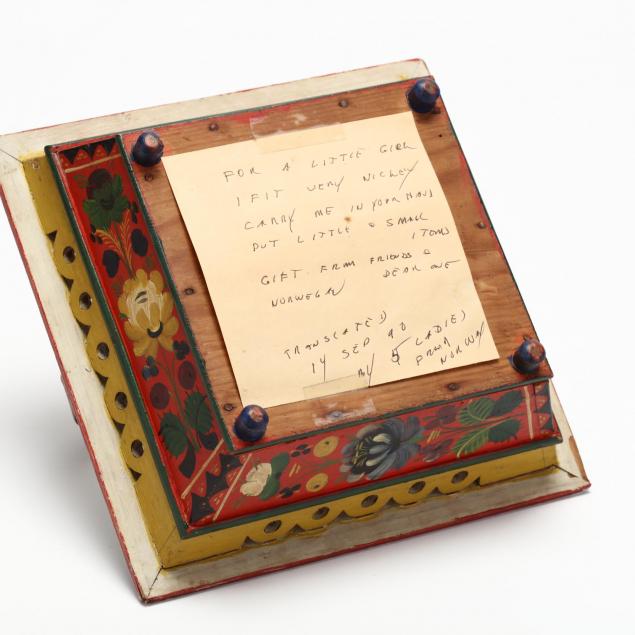 FOR A LITTLE GIRL
I FIT VERY NICLEY
CARRY ME IN YOUR HAND
PUT LITTLE & SMALL
ITEMS
GIFT FROM FRIENDS &
NORWEGAN DEAR ONE
TRANSLATED
14 SEP 90
BY 5 LADIES
FROM
NORWAY